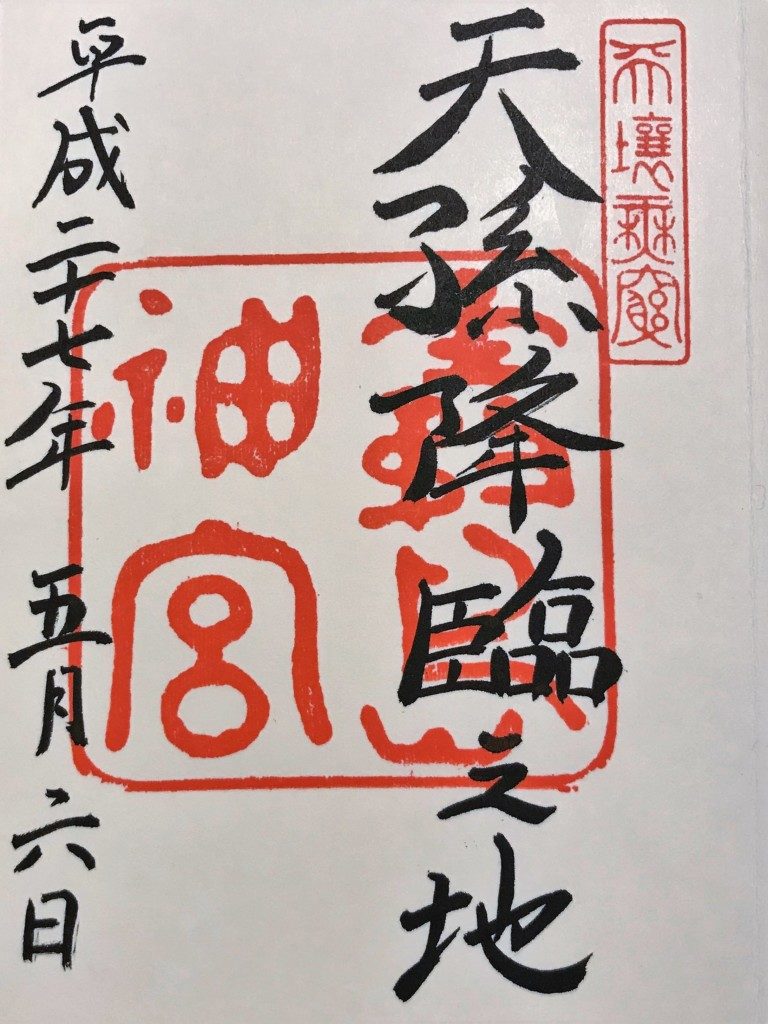 天壤無窮
天孫降臨之地
霧島
神宮
平成二十七年 五月 六日